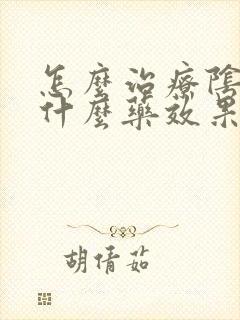 怎麼治療陰
什麼藥效果
胡倩茹